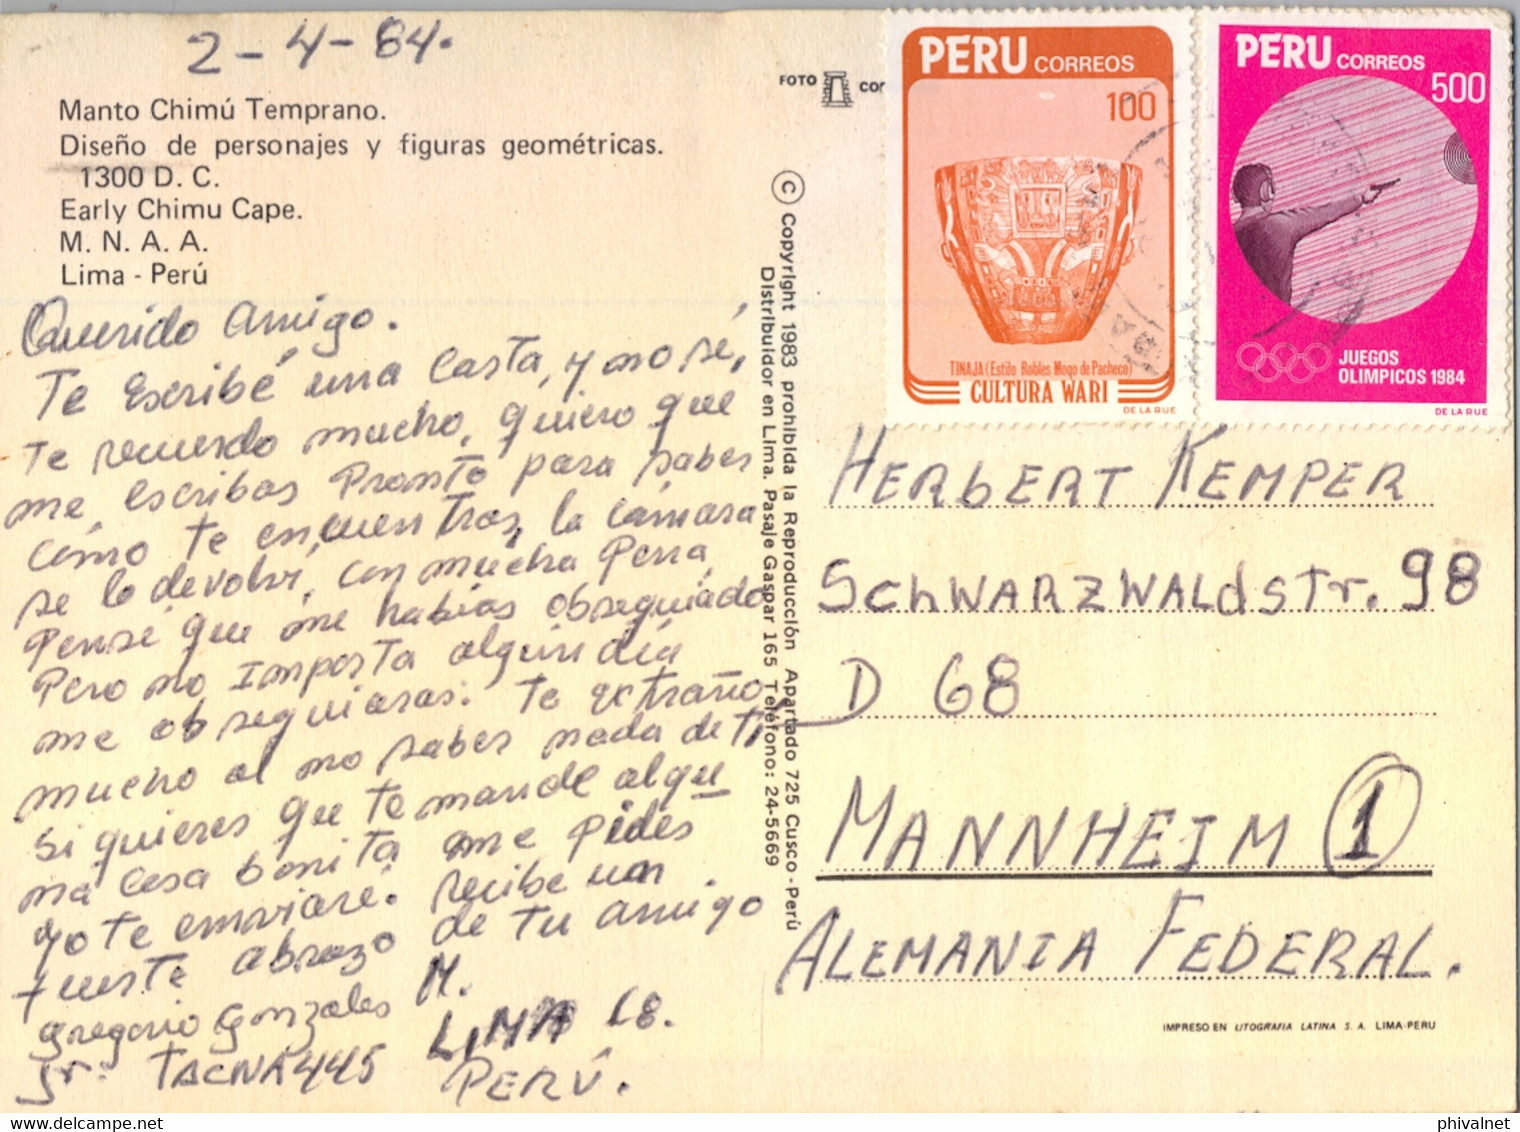 2-4-84.
Manto Chimú Temprano.
Diseño de personajes y figuras geométricas.
1300 D. C.
Early Chimu Cape.
M. N. A. A.
Lima - Perú
Querido Amigo.
Te Escribé una Carta, y no sé,
Te recuerdo mucho, quiero que
me escribas Pronto para saber
cómo te encuentras, la cámara
se lo devolvi, con mucha Pena,
Pensé que me habias obsequiado
Pero no Importa algun día
me obsequiaras. Te extraño
mucho al no saber nada de ti
si quieres que te mande algu
na cosa bonita me pides
yo te enviaré. recibe un
fuerte abrazo de tu amigo
Gregorio Gonzales M.
Jr. TACNA 445 LIMA 18.
PERÚ.
FOTO COR
© Copyright 1983 prohibida la Reproducción Apartado 725 Cusco - Perú
Distribuidor en Lima. Pasaje Gaspar 165 Teléfono: 24-5669
PERU CORREOS
100
TINAJA (Estilo Robles Moqo de Pacheco)
CULTURA WARI
DE LA RUE
PERU CORREOS
500
JUEGOS
OLIMPICOS 1984
DE LA RUE
HERBERT KEMPER
SCHWARZWALDSTr. 98
D 68
MANNHEIM 1
ALEMANIA FEDERAL.
IMPRESO EN LITOGRAFIA LATINA S. A. LIMA-PERU
phivalnet